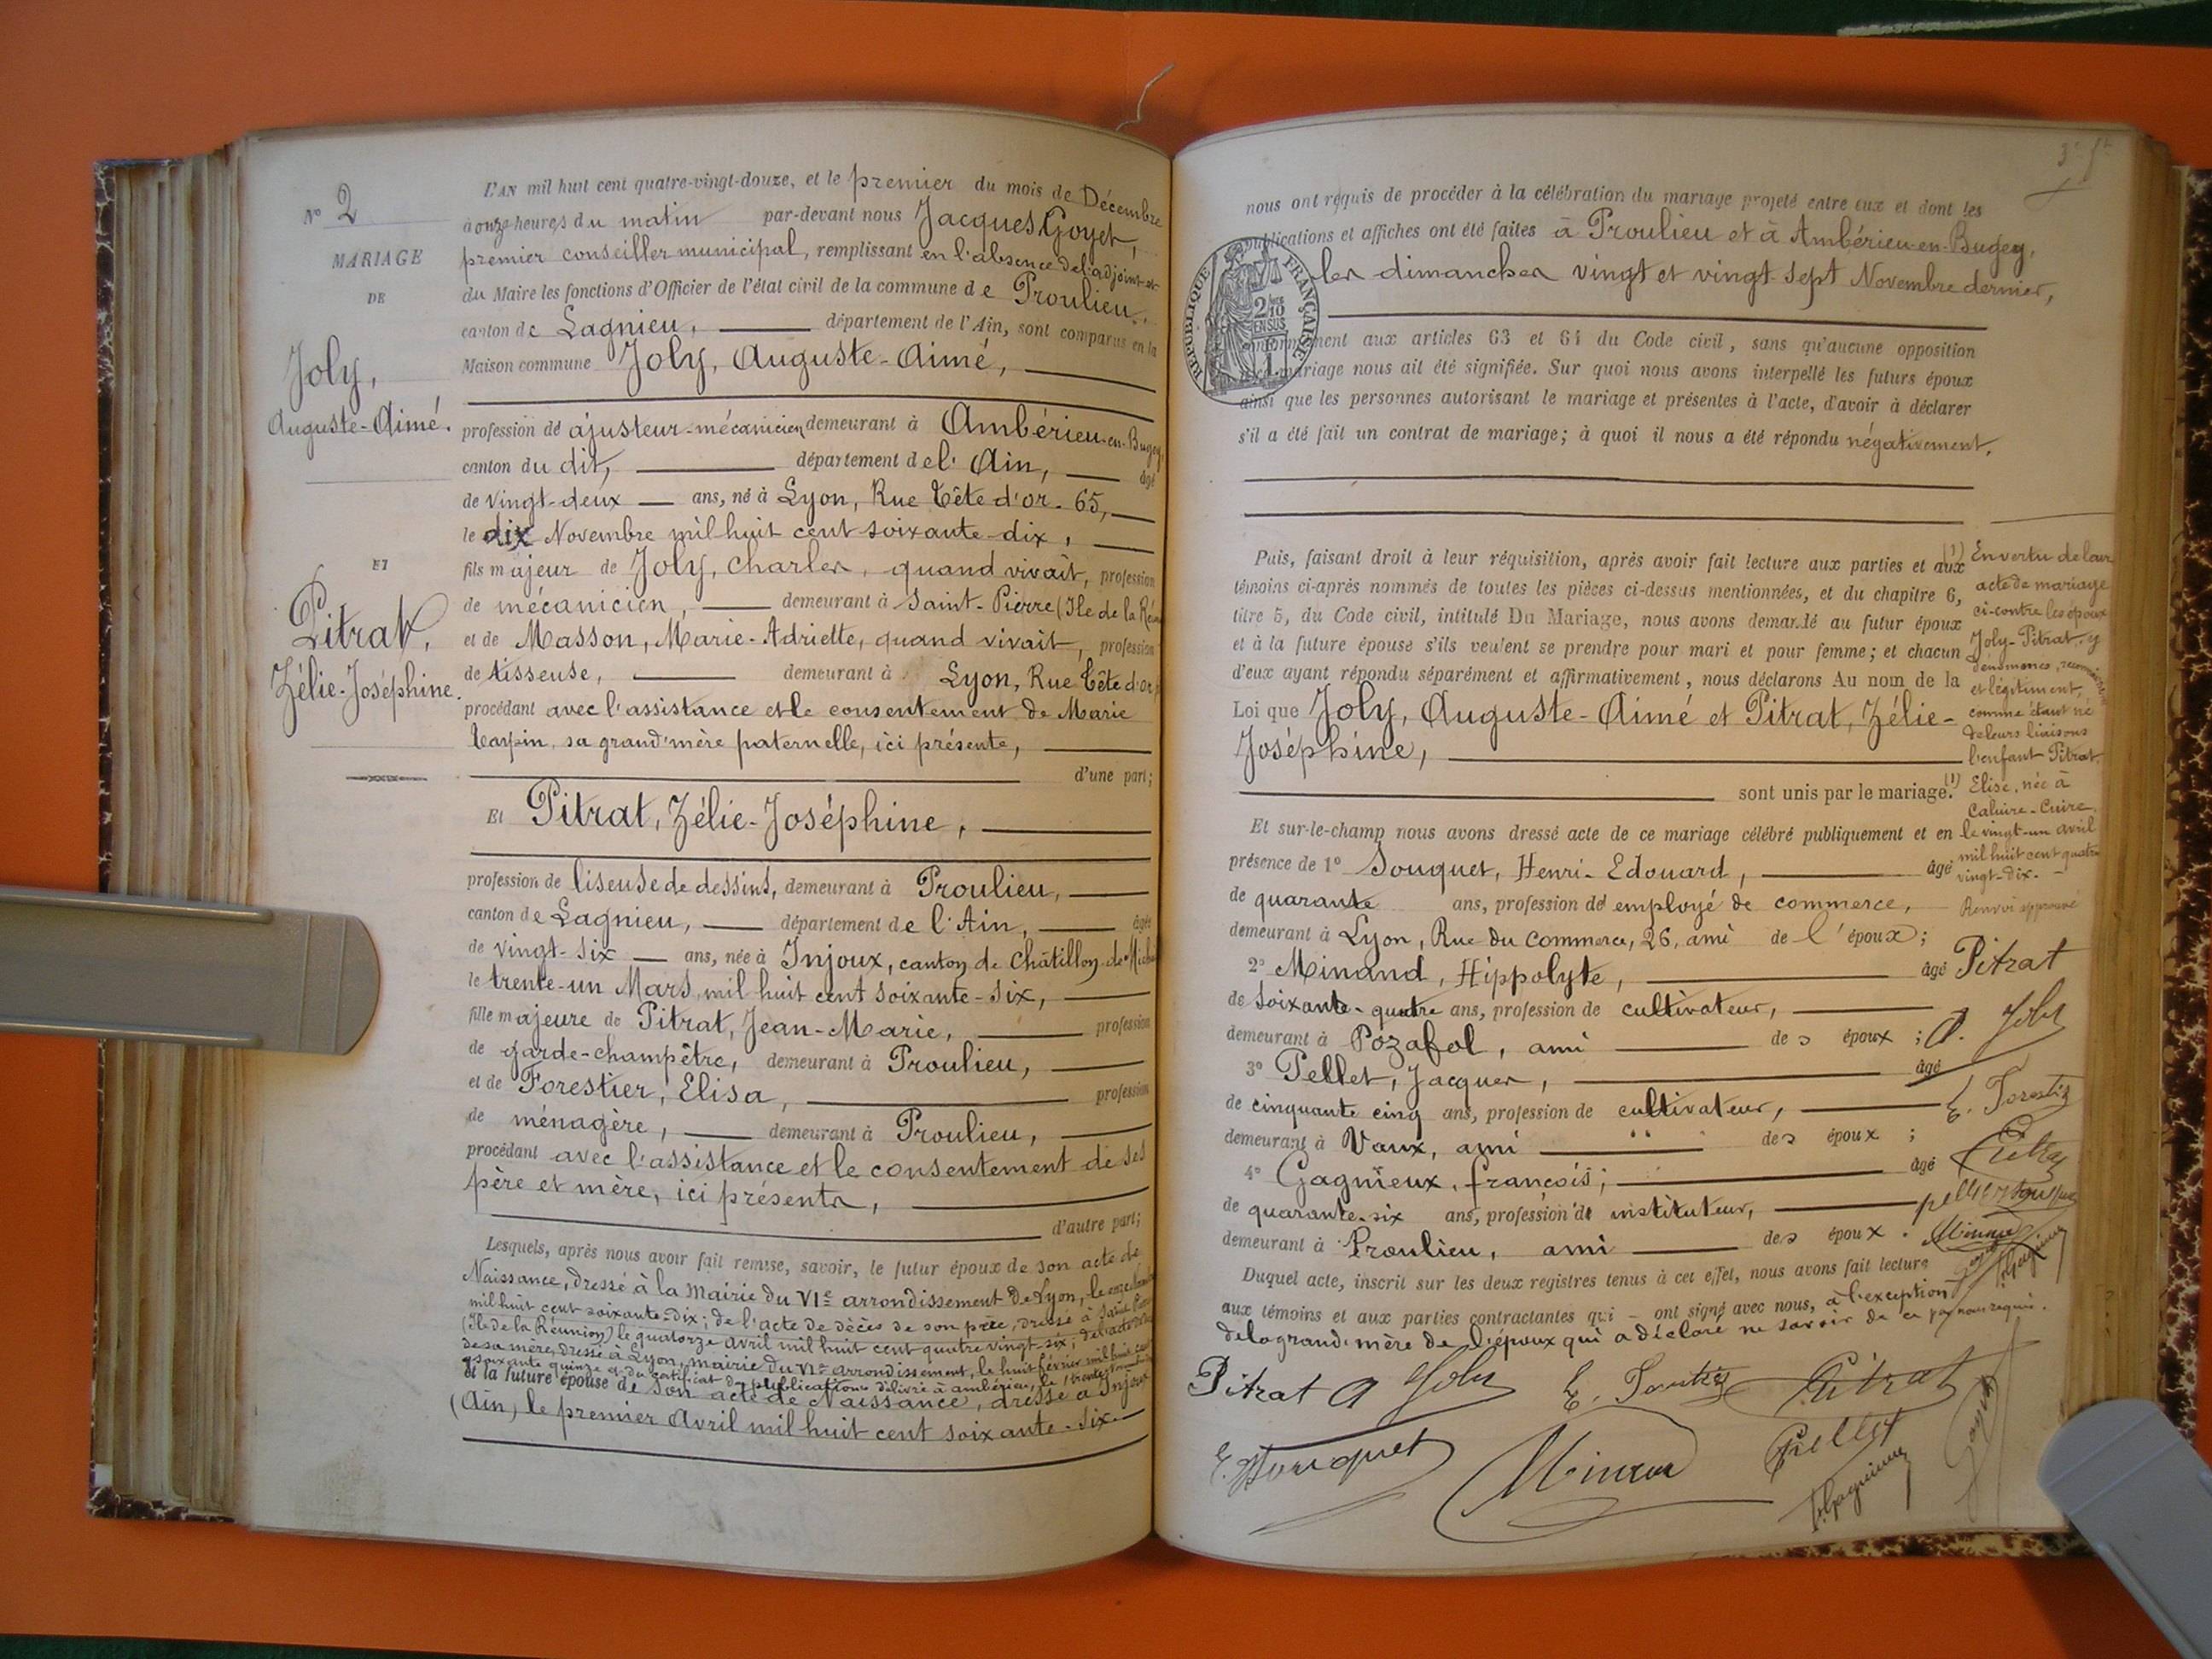 N° 2
MARIAGE
DE
Joly,
Auguste-Aimé.
ET
Pitrat,
Zélie-Joséphine.
L'AN mil huit cent quatre-vingt-douze, et le premier du mois de Décembre
à onze heures du matin par-devant nous Jacques Goyet,
premier conseiller municipal, remplissant en l'absence de l'adjoint et
du Maire les fonctions d'Officier de l'état civil de la commune de Proulieu,
canton de Lagnieu, département de l'Ain, sont comparus en la
Maison commune Joly, Auguste-Aimé,
profession de ajusteur-mécanicien demeurant à Ambérieu-en-Bugey,
canton du dit, département de l'Ain, âgé
de vingt-deux ans, né à Lyon, Rue Tête d'or. 65,
le dix Novembre mil huit cent soixante-dix,
fils majeur de Joly, Charles, quand vivait, profession
de mécanicien, demeurant à Saint-Pierre (Ile de la
et de Masson, Marie-Adriette, quand vivait, profession
de tisseuse, demeurant à Lyon, Rue Tête d'or,
procédant avec l'assistance et le consentement de Marie
Carpin, sa grand'mère paternelle, ici présente,
d'une part;
Et Pitrat, Zélie-Joséphine,
profession de liseuse de dessins, demeurant à Proulieu,
canton de Lagnieu, département de l'Ain, âgée
de vingt-six ans, née à Injoux, canton de Châtillon-de-
le trente-un Mars mil huit cent soixante-six,
fille majeure de Pitrat, Jean-Marie, profession
de garde-champêtre, demeurant à Proulieu,
et de Forestier, Elisa, profession
de ménagère, demeurant à Proulieu,
procédant avec l'assistance et le consentement de ses
père et mère, ici présents,
d'autre part;
Lesquels, après nous avoir fait remise, savoir, le futur époux de son acte de
Naissance, dressé à la Mairie du VIe arrondissement de Lyon, le onze
mil huit cent soixante-dix; de l'acte de décès de son père, dressé à Saint
(Ile de la Réunion) le quatorze avril mil huit cent quatre vingt-six; de l'acte
de sa mère, dressé à Lyon, mairie du VIe arrondissement, le huit février mil huit cent
soixante quinze du certificat de publications délivré à Ambérieu, le trente
et la future épouse de son acte de Naissance, dressé à Injoux
(Ain) le premier Avril mil huit cent soixante-six.
nous ont requis de procéder à la célébration du mariage projeté entre eux et dont les
publications et affiches ont été faites à Proulieu et à Ambérieu-en-Bugey,
les dimanches vingt et vingt-sept Novembre dernier,
RÉPUBLIQUE FRANÇAISE
2/10 EN SUS
conformément aux articles 63 et 64 du Code civil, sans qu'aucune opposition
mariage nous ait été signifiée. Sur quoi nous avons interpellé les futurs époux
ainsi que les personnes autorisant le mariage et présentes à l'acte, d'avoir à déclarer
s'il a été fait un contrat de mariage; à quoi il nous a été répondu négativement.
Puis, faisant droit à leur réquisition, après avoir fait lecture aux parties et aux
témoins ci-après nommés de toutes les pièces ci-dessus mentionnées, et du chapitre 6,
titre 5, du Code civil, intitulé Du Mariage, nous avons demandé au futur époux
et à la future épouse s'ils veulent se prendre pour mari et pour femme; et chacun
d'eux ayant répondu séparément et affirmativement, nous déclarons Au nom de la
Loi que Joly, Auguste-Aimé et Pitrat, Zélie-
Joséphine,
sont unis par le mariage. (1)
Et sur-le-champ nous avons dressé acte de ce mariage célébré publiquement et en
présence de 1° Souquet, Henri-Edouard, âgé
de quarante ans, profession de employé de commerce,
demeurant à Lyon, Rue du Commerce, 26, ami de l'époux;
2° Minand, Hippolyte, âgé
de soixante-quatre ans, profession de cultivateur,
demeurant à Pozafol, ami des époux;
3° Pellet, Jacques, âgé
de cinquante cinq ans, profession de cultivateur,
demeurant à Vaux, ami des époux;
4° Gagnieux, françois; âgé
de quarante-six ans, profession de instituteur,
demeurant à Proulieu, ami des époux.
Duquel acte, inscrit sur les deux registres tenus à cet effet, nous avons fait lecture
aux témoins et aux parties contractantes qui ont signé avec nous, à l'exception
de la grand'mère de l'époux qui a déclaré ne savoir de ce par nous requis.
Pitrat A Joly E. Forestier Pitrat
E. Souquet Minand Pellet F. Gagnieux Goyet
(1) En vertu de leur
acte de mariage
ci-contre les époux
Joly-Pitrat, y
dénommés, reconnaissent
et légitiment,
comme étant né
de leurs liaisons
l'enfant Pitrat
Elise, née à
Caluire-Cuire
le vingt-un avril
mil huit cent quatre
vingt-dix.
Renvoi approuvé
Pitrat
A. Joly
E. Forestier
Pitrat
pellet Souquet
Minand
Goyet F. Gagnieux